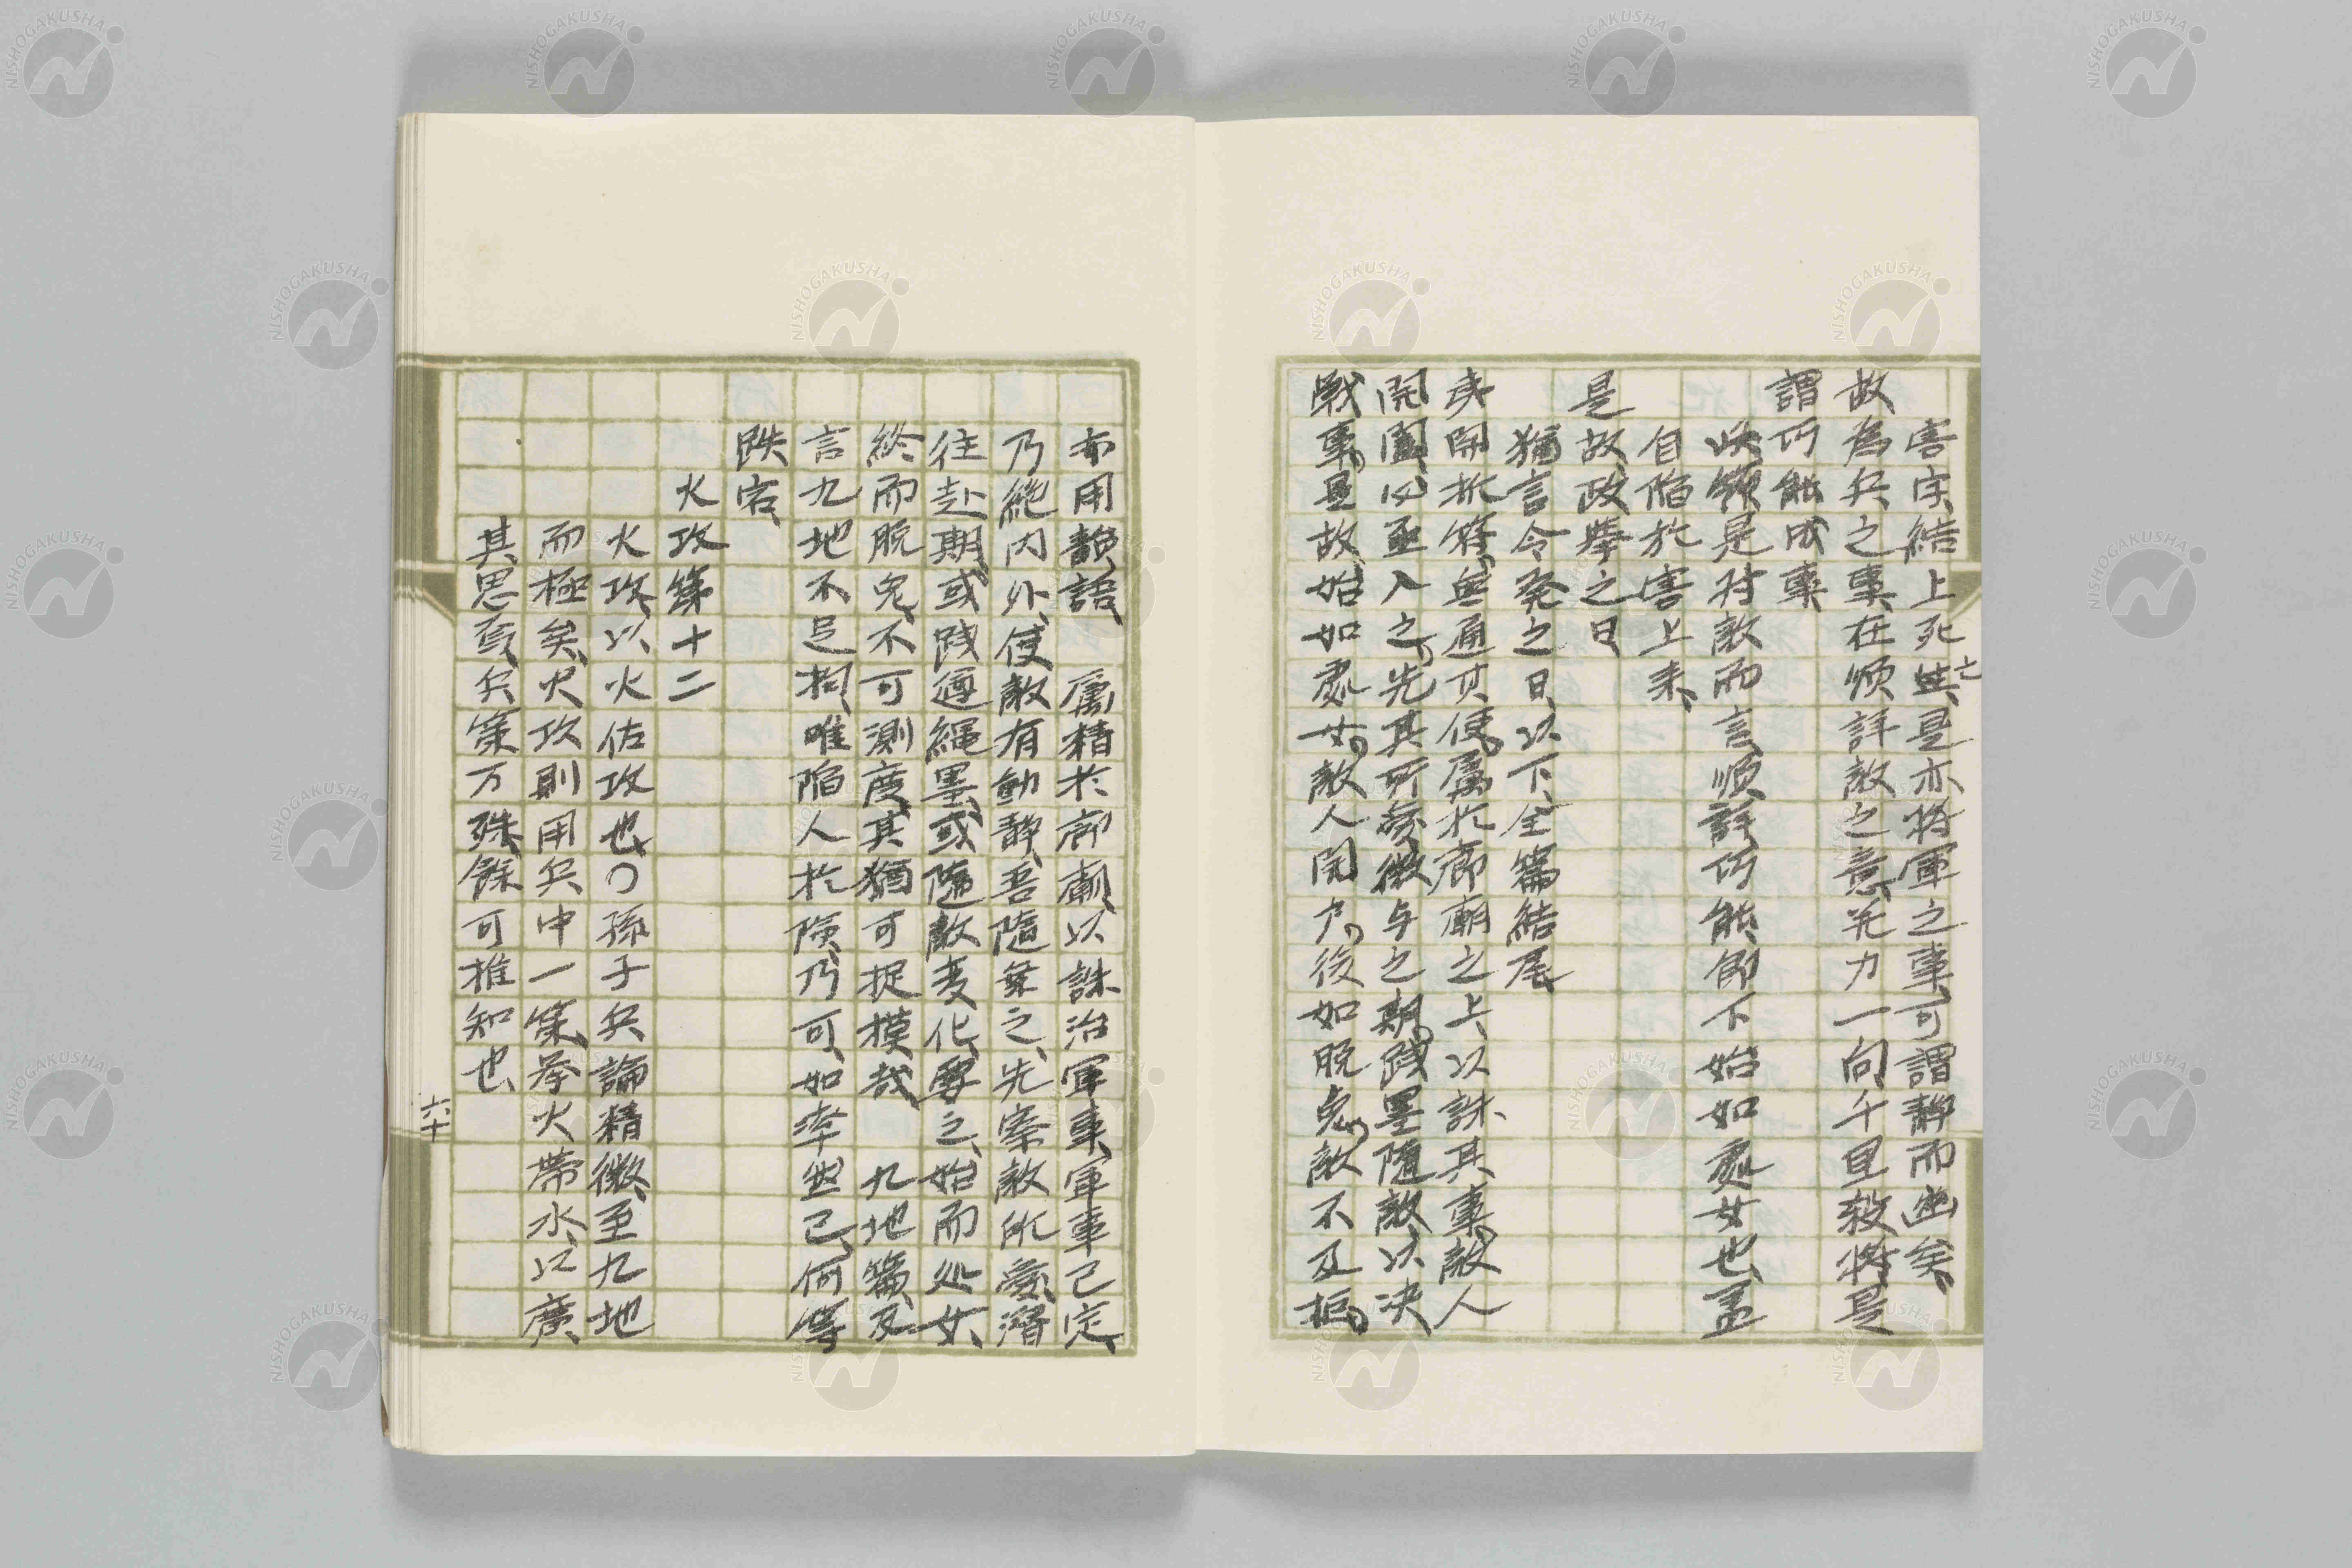 害字結上死亡, 是亦将軍之事, 可謂静而幽矣,
故為兵之事在順詳敵之意, 并力一向千里殺将是
謂巧能成事
順是対敵而言, 順詳巧能即下始如處女也, 盖
自陥於害上来,
是故政挙之日
猶言令発之日, 以下全篇結尾
夷関折符, 無通其使, 厲於廊廟之上, 以誅其事, 敵人
開闔必亟入之, 先其所愛, 微与之期, 践墨隨敵, 以决
戦事, 是故始如處女, 敵人開戸, 後如脱兎, 敵不及拒,
亦用韻語, 厲精於廊廟, 以誅治軍事, 軍事已定,
乃絶内外, 使敵有動静, 吾隨乗之, 先察敵所愛, 潜
往赴期, 或践遵繩墨, 或隨敵変化, 要之, 始而処女,
終而脱兎, 不可測度, 其猶可捉摸哉 九地篇, 及
言九地不足拘, 唯陥人於険, 乃可, 如率然已, 何等
跌宕,
火攻第十二
火攻, 以火佐攻也, 〇孫子兵論精微, 至九地
而極矣, 火攻則用兵中一策, 挙火帯水, 以廣
其思焉, 兵策万殊, 餘可推知也,
六十
NISHOGAKUSHA